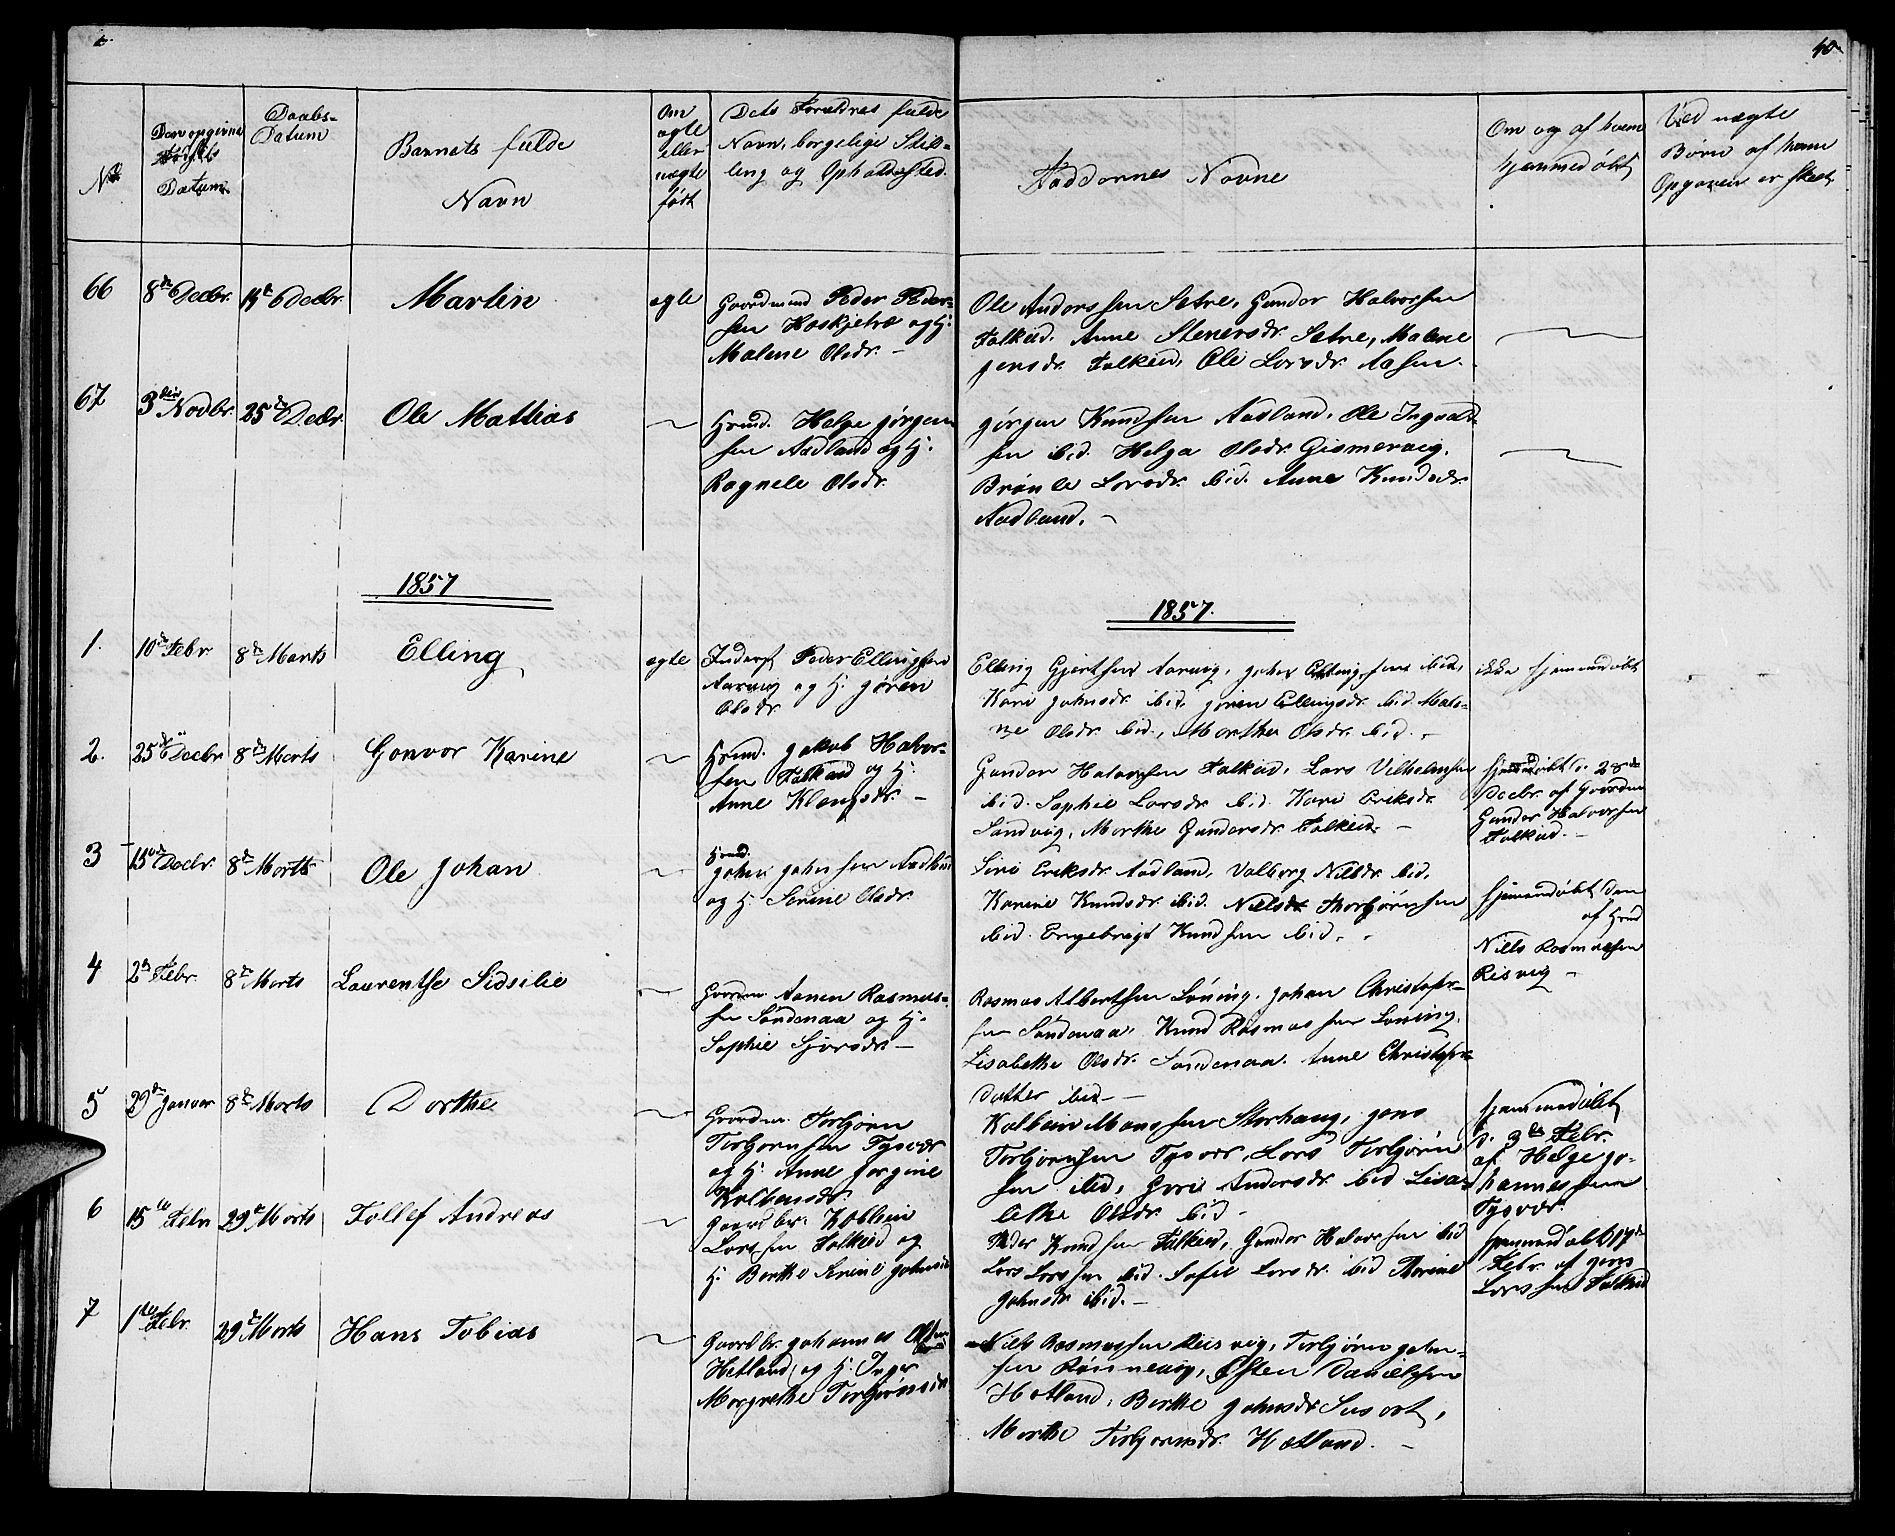 40
No
Den opgivne
Fødsels
Datum
Daabs-
Datum
Barnets fulde
Navn
Om
ægte
eller
uægte
født
Dets Forældres fulde
Navn, borgelige Stil-
ling og Opholdssted.
Faddernes Navne
Om og af hvem
hjemmedøbt
Ved uægte
Børn af hvem
Opgaven er skeet
66
8de Decbr.
Decbr.
Martin
ægte
Gaardmand Peder Peder-
sen Hoskjetræ og H.
Malene Olsdr. —
Ole Anderssen Setre, Gunder Halvorsen
Falkeid. Anne Stenersdr. Setre, Malene
Jensdr. Falkeid, Ole Larsdr. Aasen.
67
3die Novbr.
25de Decbr.
Ole Mathias
Hmd. Helge Jørgen-
sen Aadland og H.
Ragnele Olsdr.
Jørgen Knudsen Aadland, Ole Ingvald-
sen ibid. Helga Olsdr. Gismervig,
Larsdr. ibid. Anne Knudsdr.
Aadland. —
1857
1857.
1.
10de Febr.
8de Marts
Elling
ægte
Inderst Peder Ellingsen
Aarvig og H. Jøren
Olsdr.
Elling Gjertsen Aarvig, John Ellingsen ibid,
Kari Johnsdr. ibid, Jøren Ellingsdr. ibid. Male-
ne Olsdr. ibid., Marthe Olsdr. ibid. —
ikke hjemmedøbt
2.
25de Decbr.
8de Marts
Gonvor Karine
Hmd. Jakob Halvor-
sen Falkeid og H.
Anne Klengsdr. —
Gunder Halvorsen Falkeid, Lars Vilhelmsen
ibid. Sophie Larsdr. ibid. Kari Eriksdr.
Sandvig, Marthe Gundersdr. Falkeid. —
hjemmedøbt d. 28de
Decbr. af Gaardm.
Gunder Halvorsen
Falkeid. —
3
15de Decbr.
8de Marts
Ole Johan
Hmd.
John Johnsen Aadland
og H. Serine Olsdr.
Siri Eriksdr. Aadland, Valborg Nilsdr. ibid,
Karine Knudsdr. ibid. Niels Thorbjørnsen
ibid. Engebregt Knudsen ibid.
hjemmedøbt den
af Hmd
Nills Rasmussen
Risvig —
4
2den Febr.
8de Marts
Laurentse Sidsilie
Gaardm. Aanen Rasmus-
sen Søndenaa og H.
Sophie Sjursdr. —
Rasmus Albertsen Løning, Johan Christofer-
sen Søndenaa. Knud Rasmussen Løning,
Lisabethe Olsdr. Søndenaa. Anne Christofer-
datter ibid. —
5
29de Januar
8de Marts
Dorthe
Gaardm. Torbjørn
Torbjørnsen Tysvær
og H. Anne Jorgine
Kolbensdr.
Kolbein Monssen Storhaug, Jens
Torbjørnsen Tysvær, Lars Torbjørn-
sen ibid, Guri Andersdr. ibid Lisa-
bethe Olsdr. ibid —
hjemmedøbt
d. 3de Febr.
af Helge Jo-
hannessen
Tysvær.
6
15de Febr
29de Marts
Tollef Andreas
Gaardbr. Kolbein
Larssen Falkeid og
H. Berthe Serine Johnsdr
Peder Knudsen Falkeid, Gunder Halvorsen ibid
Lars Larssen ibid. Sofie Larsdr. ibid Thorine
Johnsdr. ibid. —
hjemmedøbt 17de
Febr. af Jens
Larssen Falkeid
7
1ste Febr.
29de Marts
Hans Tobias
Gaardbr. Johannes
Hetland og H. Inger
Margrethe Torbjørnsdr
Nils Rasmussen Risvig, Torbjørn John-
sen Rønnevig, Østen Danielsen
Hetland, Berthe Johnsdr. Susort,
Marthe Torbjørnsdr. Hetland. —